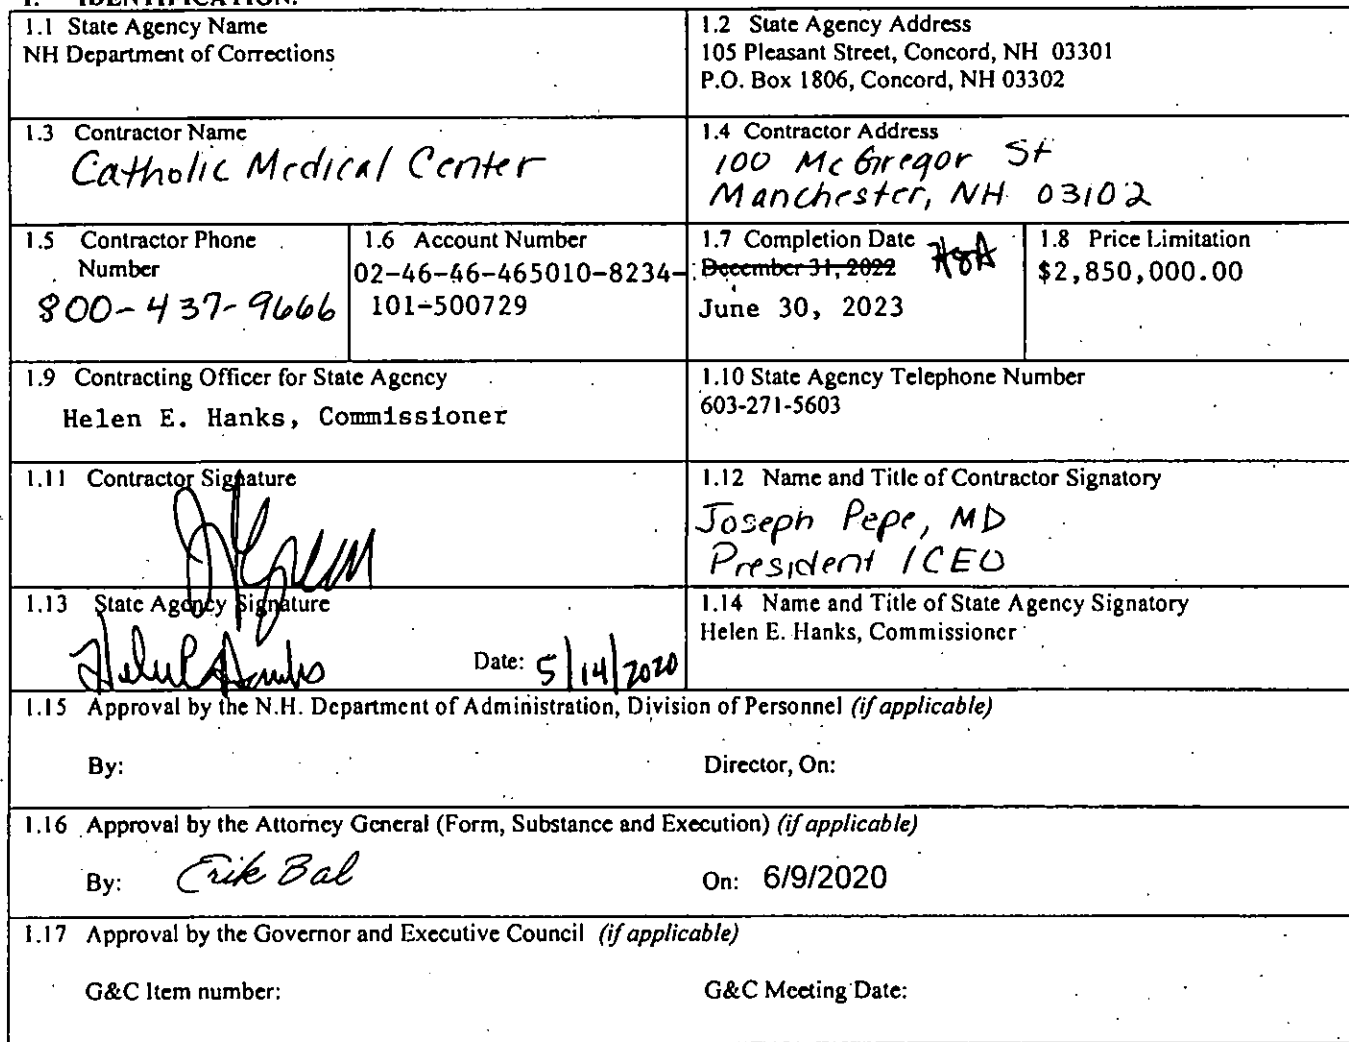 1. IDENTIFICATION.
1.1 State Agency Name
NH Department of Corrections
1.2 State Agency Address
105 Pleasant Street, Concord, NH 03301
P.O. Box 1806, Concord, NH 03302
1.3 Contractor Name
Catholic Medical Center
1.4 Contractor Address
100 McGregor St
Manchester, NH 03102
1.5 Contractor Phone
Number
800-437-9666
1.6 Account Number
02-46-46-465010-8234-
101-500729
1.7 Completion Date
December 31, 2022
June 30, 2023
1.8 Price Limitation
$2,850,000.00
1.9 Contracting Officer for State Agency
Helen E. Hanks, Commissioner
1.10 State Agency Telephone Number
603-271-5603
1.11 Contractor Signature
1.12 Name and Title of Contractor Signatory
Joseph Pepe, MD
President / CEO
1.13 State Agency Signature
Date: 5/14/2020
1.14 Name and Title of State Agency Signatory
Helen E. Hanks, Commissioner
1.15 Approval by the N.H. Department of Administration, Division of Personnel (if applicable)
By:
Director, On:
1.16 Approval by the Attorney General (Form, Substance and Execution) (if applicable)
By: Erik Bal
On: 6/9/2020
1.17 Approval by the Governor and Executive Council (if applicable)
G&C Item number:
G&C Meeting Date: